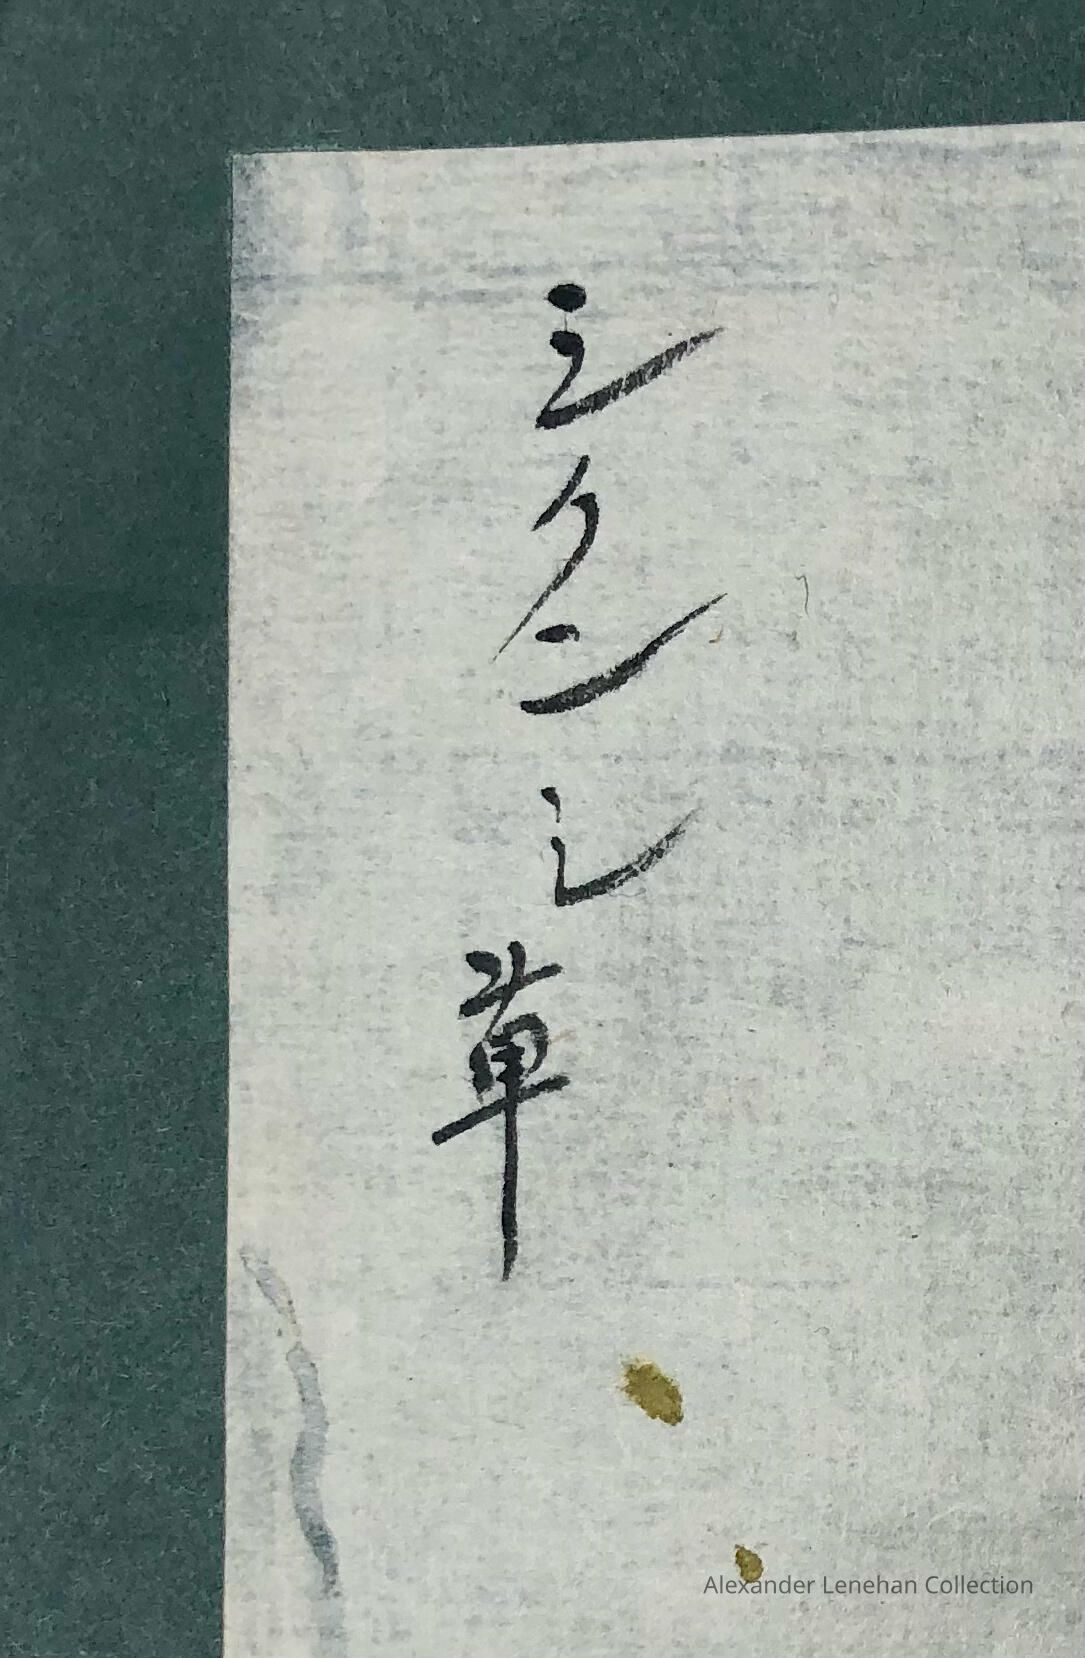 シクンシ草
Alexander Lenehan Collection